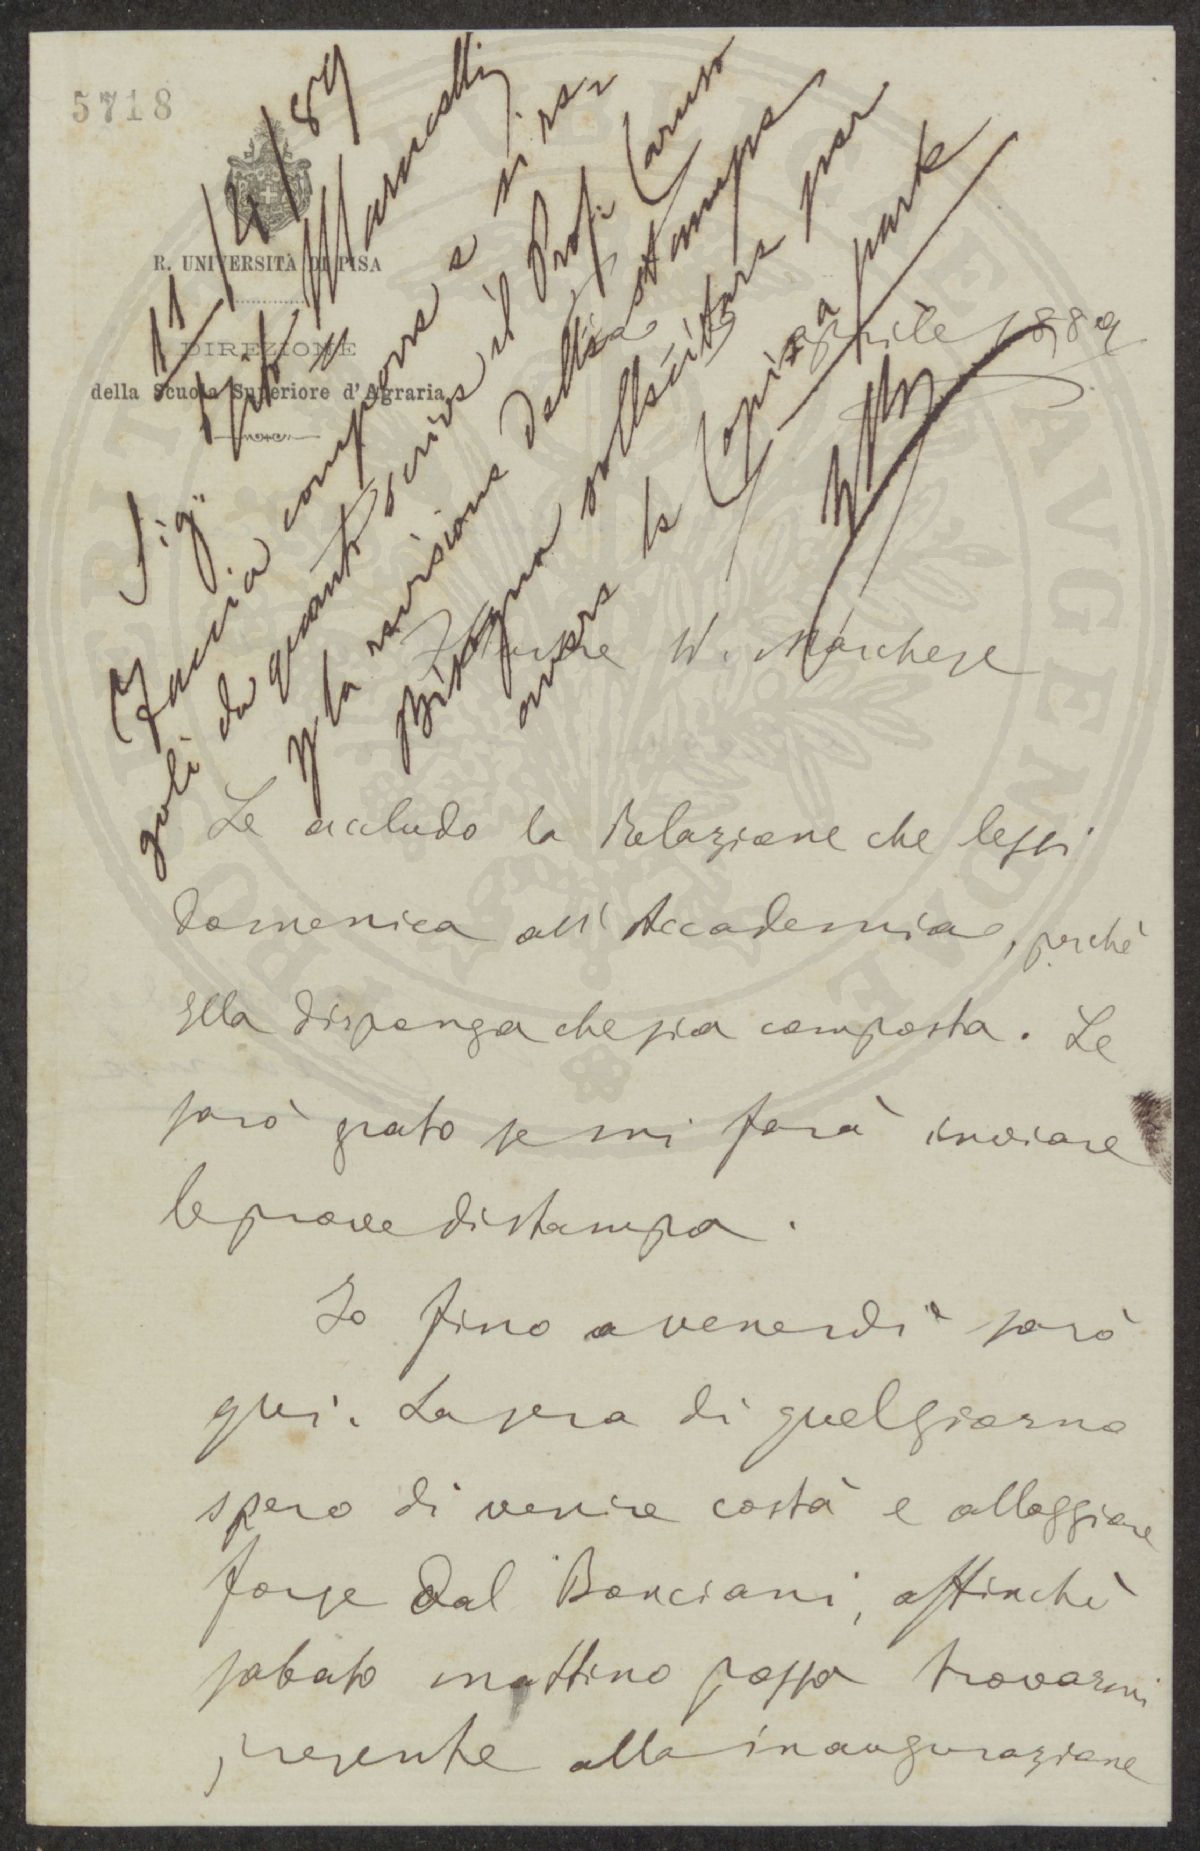 5718
R. UNIVERSITÀ DI PISA
DIREZIONE
della Scuola Superiore d'Agraria
11/4/89
Sig:
Marucelli
Faccia comporre e si re-
goli da quanto scrive il Prof. Caruso
p la revisione della stampa
Bisogna sollecitare per
avere le copie a parte
Aprile 1889
Illustre W. Marchese
Le accludo la Relazione che lessi
Domenica all'Accademia, perchè
Ella disponga che sia composta. Le
sarò grato se mi farà inviare
le prove di stampa.
Io fino a venerdì sarò
qui. La sera di quel giorno
spero di venire costà e alloggiare
forse dal Bonciani, affinchè
sabato mattino possa trovarmi
presente alla inaugurazione